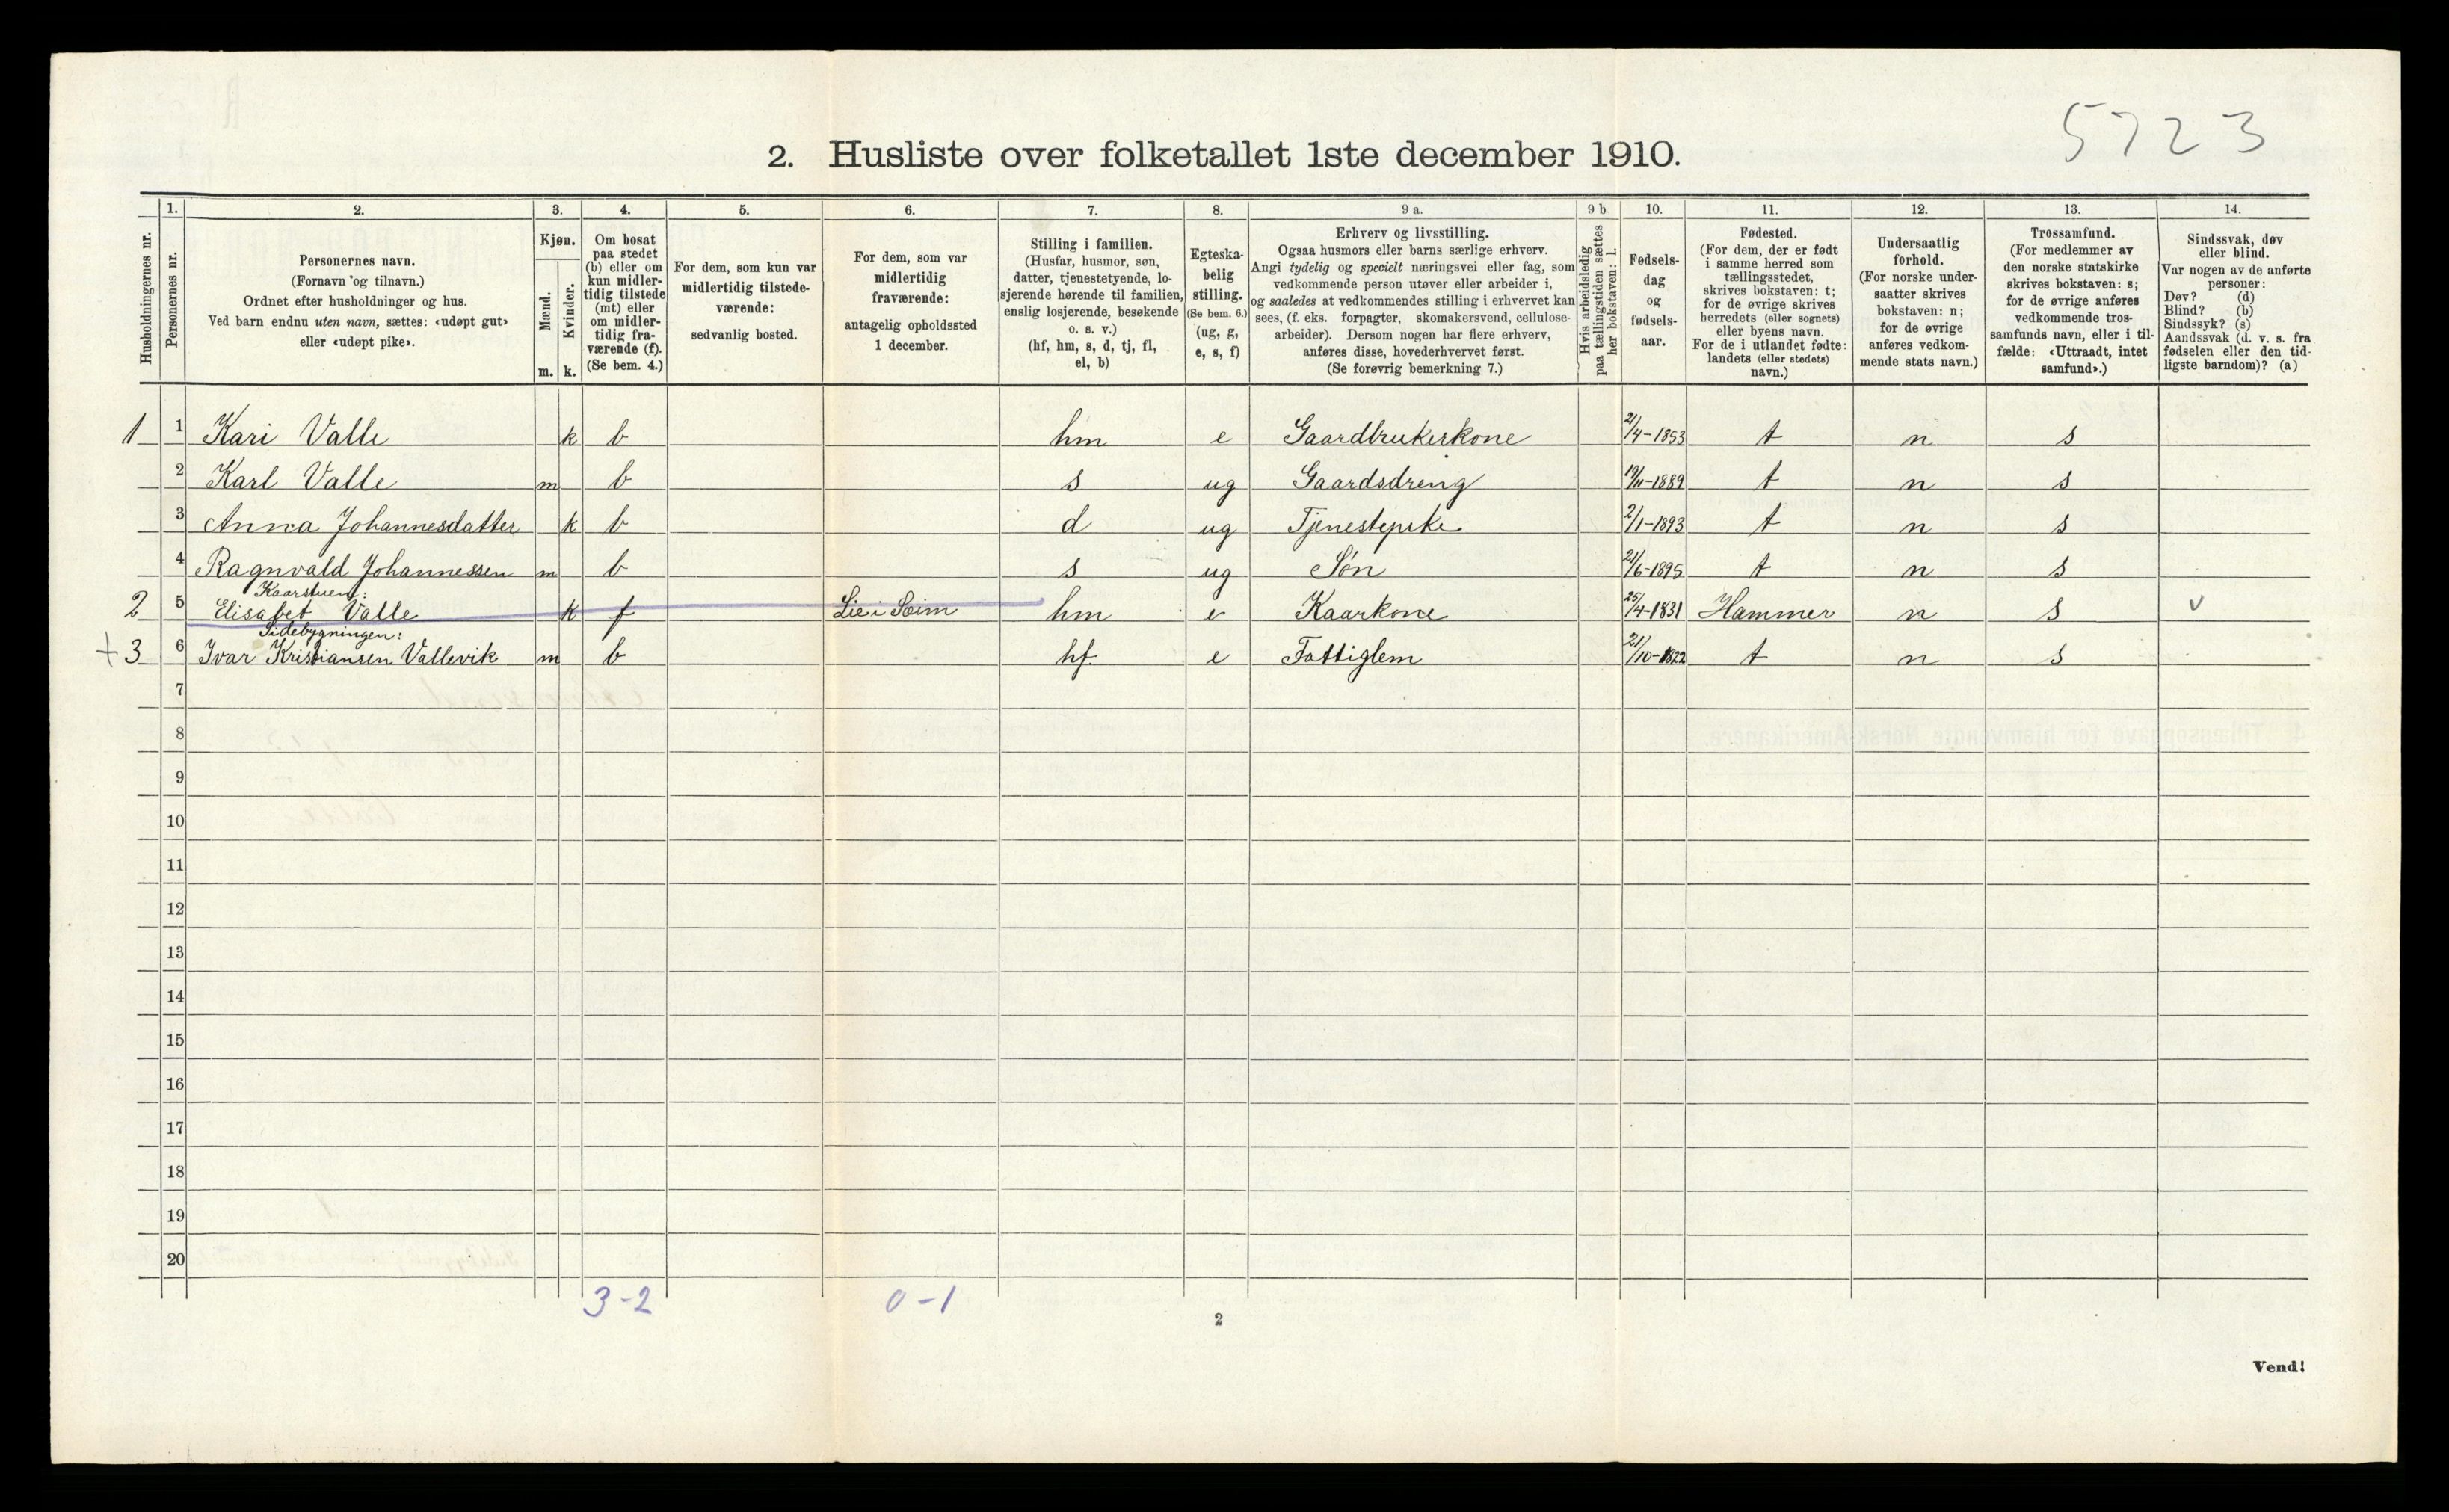 5723
2. Husliste over folketallet 1ste december 1910.
Husholdningernes nr.
1. Personernes nr.
2. Personernes navn.
(Fornavn og tilnavn.)
Ordnet efter husholdninger og hus.
Ved barn endnu uten navn, sættes: «udøpt gut»
eller «udøpt pike».
3. Kjøn.
Mænd. m.
Kvinder. k.
4. Om bosat
paa stedet
(b) eller om
kun midler-
tidig tilstede
(mt) eller
om midler-
tidig fra-
værende (f).
(Se bem. 4.)
5. For dem, som kun var
midlertidig tilstede-
værende:
sedvanlig bosted.
6. For dem, som var
midlertidig
fraværende:
antagelig opholdssted
1 december.
7. Stilling i familien.
(Husfar, husmor, søn,
datter, tjenestetyende, lo-
sjerende hørende til familien,
enslig losjerende, besøkende
o. s. v.)
(hf, hm, s, d, tj, fl,
el, b)
8. Egteska-
belig
stilling.
(Se bem. 6.)
(ug, g,
e, s, f)
9 a. Erhverv og livsstilling.
Ogsaa husmors eller barns særlige erhverv.
Angi tydelig og specielt næringsvei eller fag, som
vedkommende person utøver eller arbeider i,
og saaledes at vedkommendes stilling i erhvervet kan
sees, (f. eks. forpagter, skomakersvend, cellulose-
arbeider). Dersom nogen har flere erhverv,
anføres disse, hovederhvervet først.
(Se forøvrig bemerkning 7.)
9 b Hvis arbeidsledig
paa tællingstiden sættes
her bokstaven: l.
10. Fødsels-
dag
og
fødsels-
aar.
11. Fødested.
(For dem, der er født
i samme herred som
tællingsstedet,
skrives bokstaven: t;
for de øvrige skrives
herredets (eller sognets)
eller byens navn.
For de i utlandet fødte:
landets (eller stedets)
navn.)
12. Undersaatlig
forhold.
(For norske under-
saatter skrives
bokstaven: n;
for de øvrige
anføres vedkom-
mende stats navn.)
13. Trossamfund.
(For medlemmer av
den norske statskirke
skrives bokstaven: s;
for de øvrige anføres
vedkommende tros-
samfunds navn, eller i til-
fælde: «Uttraadt, intet
samfund».)
14. Sindssvak, døv
eller blind.
Var nogen av de anførte
personer:
Døv? (d)
Blind? (b)
Sindssyk? (s)
Aandssvak (d. v. s. fra
fødselen eller den tid-
ligste barndom)? (a)
1 1 Kari Valle k b hm e Gaardbrukerkone 21/4-1853 t n s
2 Karl Valle m b s ug Gaardsdreng 19/11-1889 t n s
3 Anna Johannesdatter k b d ug Tjenestepike 2/1-1893 t n s
4 Ragnvald Johannessen m b s ug Søn 21/6-1895 t n s
Kaarstuen:
2 5 Elisabet Valle k f Lie i Seim hm e Kaarkone 25/4-1831 Hammer n s v
Sidebygningen:
+3 6 Ivar Kristiansen Vallevik m b hf. e Fattiglem 21/10-1822 t n s
7
8
9
10
11
12
13
14
15
16
17
18
19
20
3-2 0-1
2
Vend!